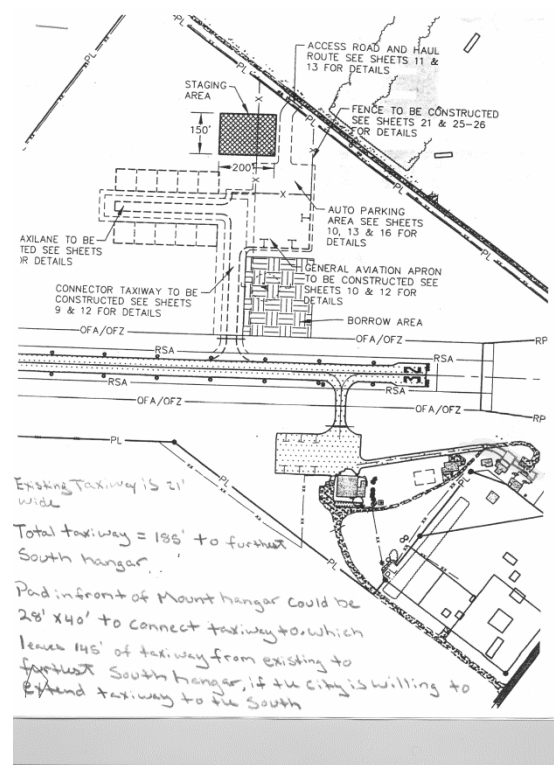 PL
PL
ACCESS ROAD AND HAUL
ROUTE SEE SHEETS 11 &
13 FOR DETAILS
STAGING
AREA
150'
200'
FENCE TO BE CONSTRUCTED
SEE SHEETS 21 & 25-26
FOR DETAILS
PL
PL
AUTO PARKING
AREA SEE SHEETS
10, 13 & 16 FOR
DETAILS
AXILANE TO BE
TED SEE SHEETS
OR DETAILS
GENERAL AVIATION APRON
TO BE CONSTRUCTED SEE
SHEETS 10 & 12 FOR
DETAILS
CONNECTOR TAXIWAY TO BE
CONSTRUCTED SEE SHEETS
9 & 12 FOR DETAILS
BORROW AREA
OFA/OFZ
OFA/OFZ
RP
RSA
RSA
32
RSA
RSA
OFA/OFZ
OFA/OFZ
RP
PL
PL
PL
Existing Taxiway is 21'
wide
Total taxiway = 185' to furthest
South hangar
Pad in front of Mount hangar could be
28' x 40' to connect taxiway to. which
leaves 145' of taxiway from existing to
furthest South hangar, if the City is willing to
extend taxiway to the South